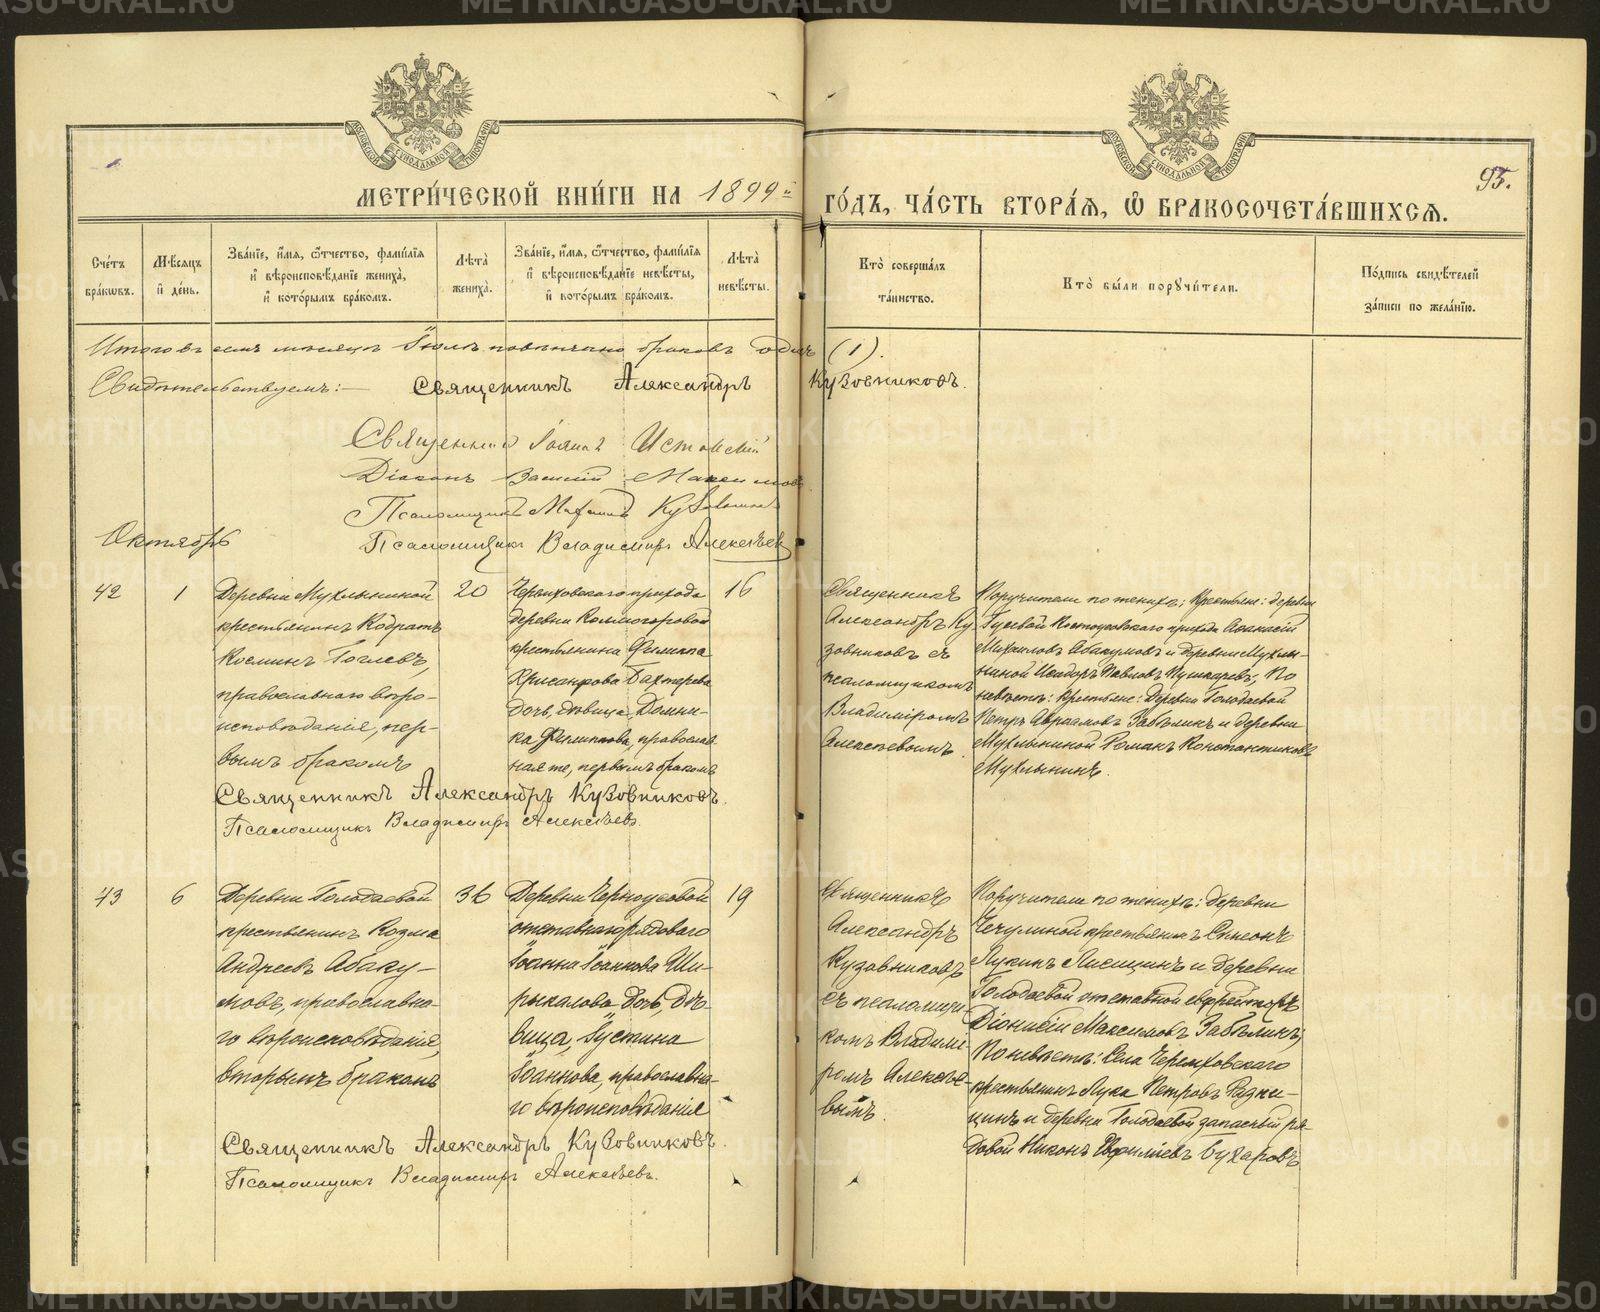 МЕТРИ́ЧЕСКОЙ КНИ́ГИ НА 1899й ГО́ДЪ, ЧА́СТЬ ВТОРА́Я, Ѿ БРАКОСОЧЕТА́ВШИХСЯ.
95.
Сче́тъ бра́кѡвъ.
Мѣ́сяцъ и҆ де́нь.
Зва́нїе, и҆́мя, ѻ҆́тчество, фами́лїя и҆ вѣроисповѣ́данїе жениха̀, и҆ кото́рымъ бра́комъ.
Лѣ́та жениха̀.
Зва́нїе, и҆́мя, ѻ҆́тчество, фами́лїя и҆ вѣроисповѣ́данїе невѣ́сты, и҆ кото́рымъ бра́комъ.
Лѣ́та невѣ́сты.
Кто̀ соверша́лъ та́инство.
Кто̀ бы́ли порꙋчи́тели.
По́дпись свидѣ́телей за́писи по жела́нїю.
Итого въ семъ мѣсяцѣ Іюлѣ повѣнчано браковъ одинъ (1).
Свидѣтельствуемъ:— Священникъ Александръ Кузовниковъ.
Священникъ Іоаннъ
Діаконъ Василій Максимовъ
Псаломщикъ
Псаломщикъ Владиміръ Алексѣевъ
Октябрь
42
1
Деревни Мухлыниной
крестьянинъ Кодратъ
Косминъ Гоглевъ,
православнаго вѣро-
исповѣданія, пер-
вымъ бракомъ
20
Черемховскаго прихода
деревни Колмогоровой
крестьянина Филиппа
Хрисанфова Бахтерева
дочь, дѣвица, Домни-
ка Филиппова, православ-
ная же, первымъ бракомъ
16
Священникъ
Александръ Ку
зовниковъ съ
псаломщикомъ
Владиміромъ
Алексѣевымъ.
Поручители по женихѣ; Крестьяне: деревни
Гусевой Костоусовскаго прихода Аѳанасій
Михаиловъ Абакумовъ и деревни Мухлы-
ниной Исидоръ Павловъ Пушкаревъ; По
невѣстѣ: крестьяне: Деревни Голодаевой
Петръ Авраамовъ Забѣлинъ и деревни
Мухлыниной Романъ Константиновъ
Мухлынинъ.
Священникъ Александръ Кузовниковъ.
Псаломщикъ Владиміръ Алексѣевъ.
43
6
Деревни Голодаевой
крестьянинъ Козма
Андреевъ Абаку-
мовъ, православна-
го вѣроисповѣданія,
вторымъ бракомъ
36
Деревни Черноусовой
отставнаго рядоваго
Іоанна Іоаннова Ши-
рыкалова дочь, дѣ-
вица, Іустина
Іоаннова, православна-
го вѣроисповѣданія
19
Священникъ
Александръ
Кузовниковъ
съ псаломщи-
комъ Владимі-
ромъ Алексѣе-
вымъ.
Поручители по женихѣ: деревни
Чечулиной крестьянинъ Симеонъ
Лукинъ Лисицинъ и деревни
Голодаевой отставной ефрейторъ
Діонисій Максимовъ Забѣлинъ;
По невѣстѣ: Села Черемховскаго
крестьянинъ Лука Петровъ
и деревни Голодаевой запасный ря-
довой Никонъ Евфиміевъ Бухаровъ
Священникъ Александръ Кузовниковъ.
Псаломщикъ Владиміръ Алексѣевъ.
METRIKI.GASO-URAL.RU